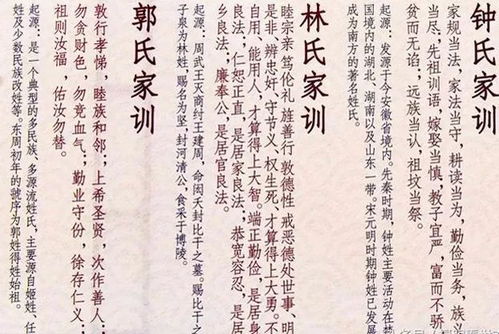 钟氏家训
家规当法，家法当守，耕读当为，勤俭当务，族
当尽，先祖训语，嫁娶当慎，教子宜严，富而不骄
贫而无谄；远族当认，祖坟当祭。
起源：发源于今安徽省境内。先秦时期，钟姓主要活动在荊
国境内的湖北、湖南以及山东一带。宋元明时期钟姓已发展
成为南方的著名姓氏。
林氏家训
睦宗亲 笃伦礼 旌善行 敦德性 戒恶德处世事，明
是非、辨忠奸、守节义、权生死、才算得上大勇。不
自用、能用人，才算得上大智。端正勤俭，是居身
良法；仁恕正直，是居家良法；恭宽容忍，是居
乡良法；廉奉公，是居官良法。
起源：周武王灭商纣王建周，命闳夭封比干之墓。赐比干之
子泉为林姓，赐名为坚，封河清公，食采于博陵。
郭氏家训
敦行孝悌，睦族和邻；上希圣贤，次作善人；
勿贪财色，勿竞血气；勤业守份，徐存仁义；
祖则汝福，佑汝勿替。
起源：是一个典型的多民族、多源流姓氏，主要源自姬姓、任
姓及少数民族改姓等。东周初年的虢序为郭姓得姓始祖。